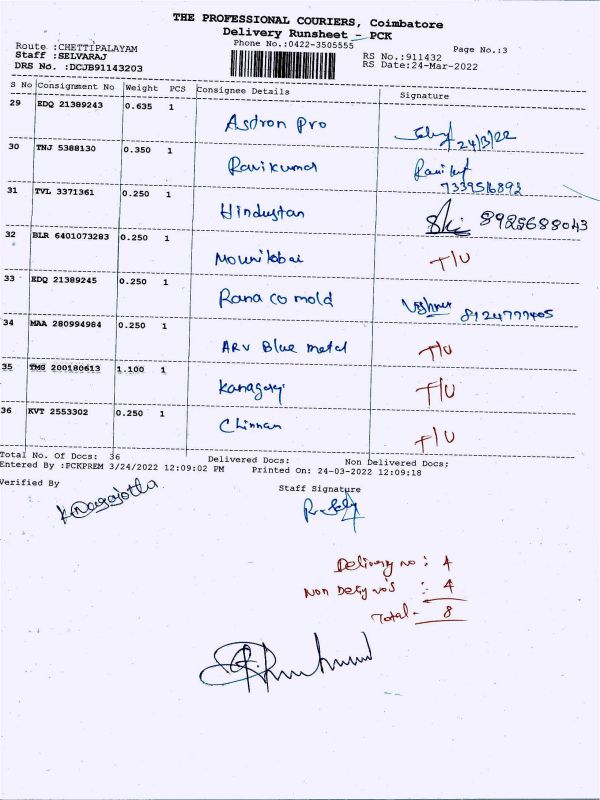 THE PROFESSIONAL COURIERS, Coimbatore
Delivery Runsheet - PCK
Phone No.:0422-3505555
Page No.:3
Route :CHETTIPALAYAM
Staff :SELVARAJ
RS No.:911432
DRS No. :DCJB91143203
RS Date:24-Mar-2022
S No Consignment No Weight PCS Consignee Details Signature
29 EDQ 21389243 0.635 1 Astron pro 24/3/22
30 TNJ 5388130 0.350 1 Ravikumar
7339516892
31 TVL 3371361 0.250 1 Hindustan 8925688043
32 BLR 6401073283 0.250 1 T/U
33 EDQ 21389245 0.250 1 Rana co mold 8124777405
34 MAA 280994984 0.250 1 ARV Blue metal T/U
35 TMG 200180613 1.100 1 Kanagaraj T/U
36 KVT 2553302 0.250 1 Chinnan T/U
Total No. Of Docs: 36 Delivered Docs: Non Delivered Docs:
Entered By :PCKPREM 3/24/2022 12:09:02 PM Printed On: 24-03-2022 12:09:18
Verified By
Staff Signature
Delivery no : 4
Non Dely no's : 4
Total - 8